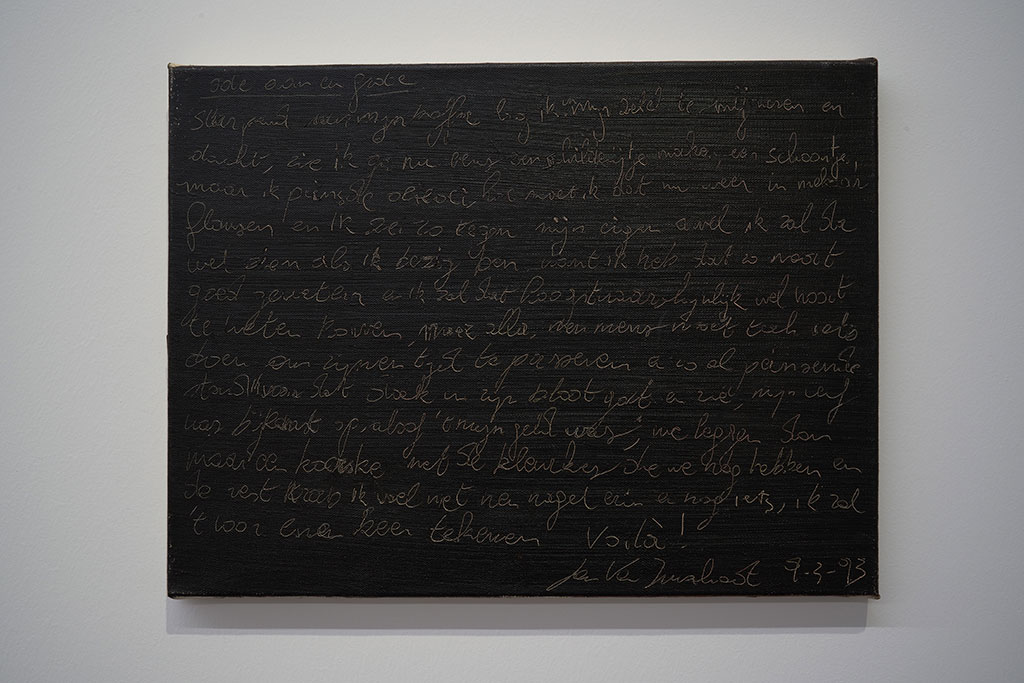 ode aan en grote
en
dacht, zie ik ga nu eens en schilderijtje maken, een schoontje,
maar ik peinsde moet ik dat nu weer in
flansen en ik zei zo tegen mijn eigen awel ik zal da
wel zien als ik bezig ben want ik heb dat zo nooit
goed geweten en ik zal dat hoogstwaarschijnlijk wel nooit
te weten komen, maar alla, nen mens moet toch iets
doen om zijnen tijd te passeren
stond voor dat doek in zijn bloot gat en zie, mijn verf
was bijkanst op alsof 't mijn geld was, we leggen dan
maar een koorske met de kleuren die we nog hebben en
de rest krab ik wel met ne nagel erin en nog iets, ik zal
't voor ene keer tekenen Voilà!
Jan Van Imschoot 9-3-93